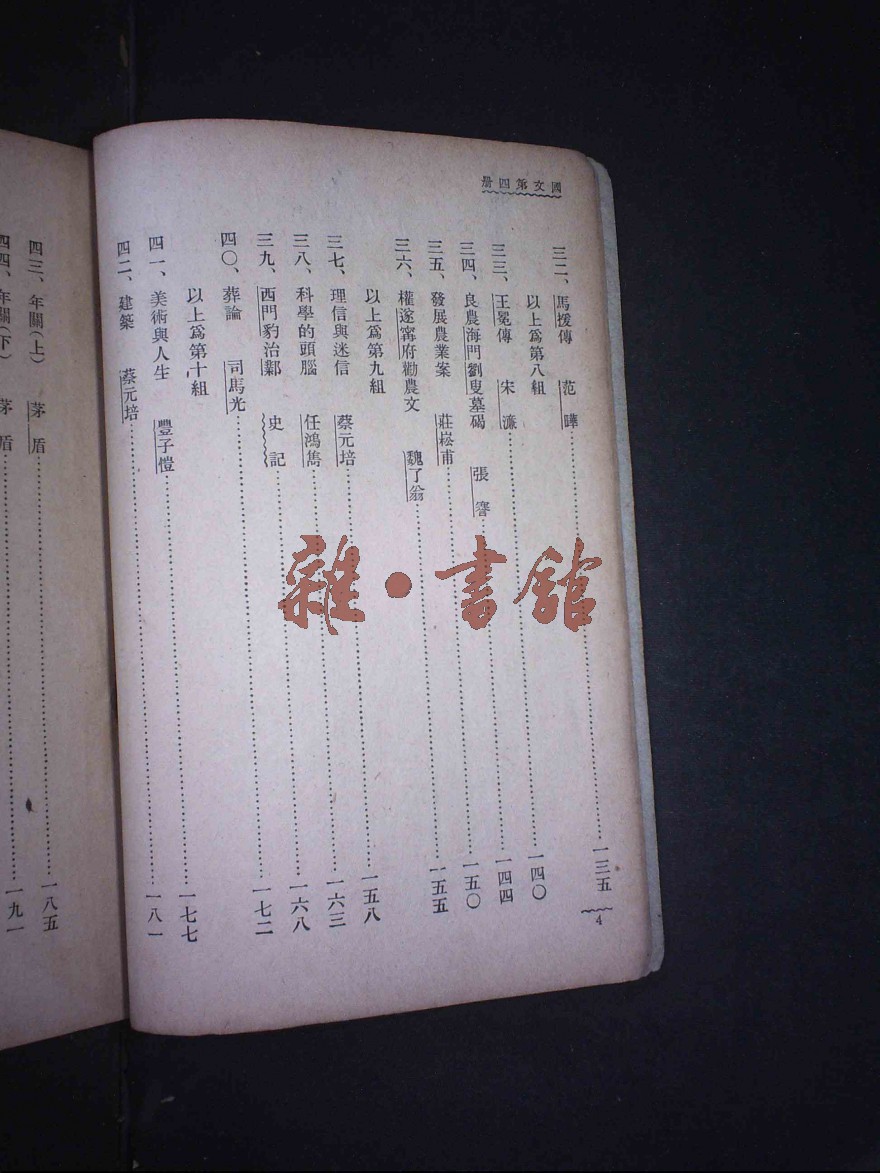 國文第四冊
三二、馬援傳 范曄……一三五
以上爲第八組
三三、王冕傳 宋濂……一四〇
三四、良農海門劉叟墓碣 張謇……一四四
三五、發展農業案 莊崧甫……一五〇
三六、權遂寗府勸農文 魏了翁……一五五
以上爲第九組
三七、理信與迷信 蔡元培……一五八
三八、科學的頭腦 任鴻雋……一六三
三九、西門豹治鄴 史記……一六八
四〇、葬論 司馬光……一七二
以上爲第十組
四一、美術與人生 豐子愷……一七七
四二、建築 蔡元培……一八一
4
四三、年關(上) 茅盾……一八五
四四、年關(下) 茅盾……一九一
雜·書館